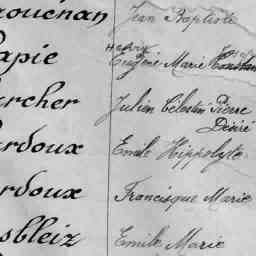 rouënan Jean Baptiste
apie Eugène Marie Constan
archer Julien Célestin Pierre
Désiré
rdoux Emile Hippolyte
rdoux Francisque Marie
sbleiz Emile Marie